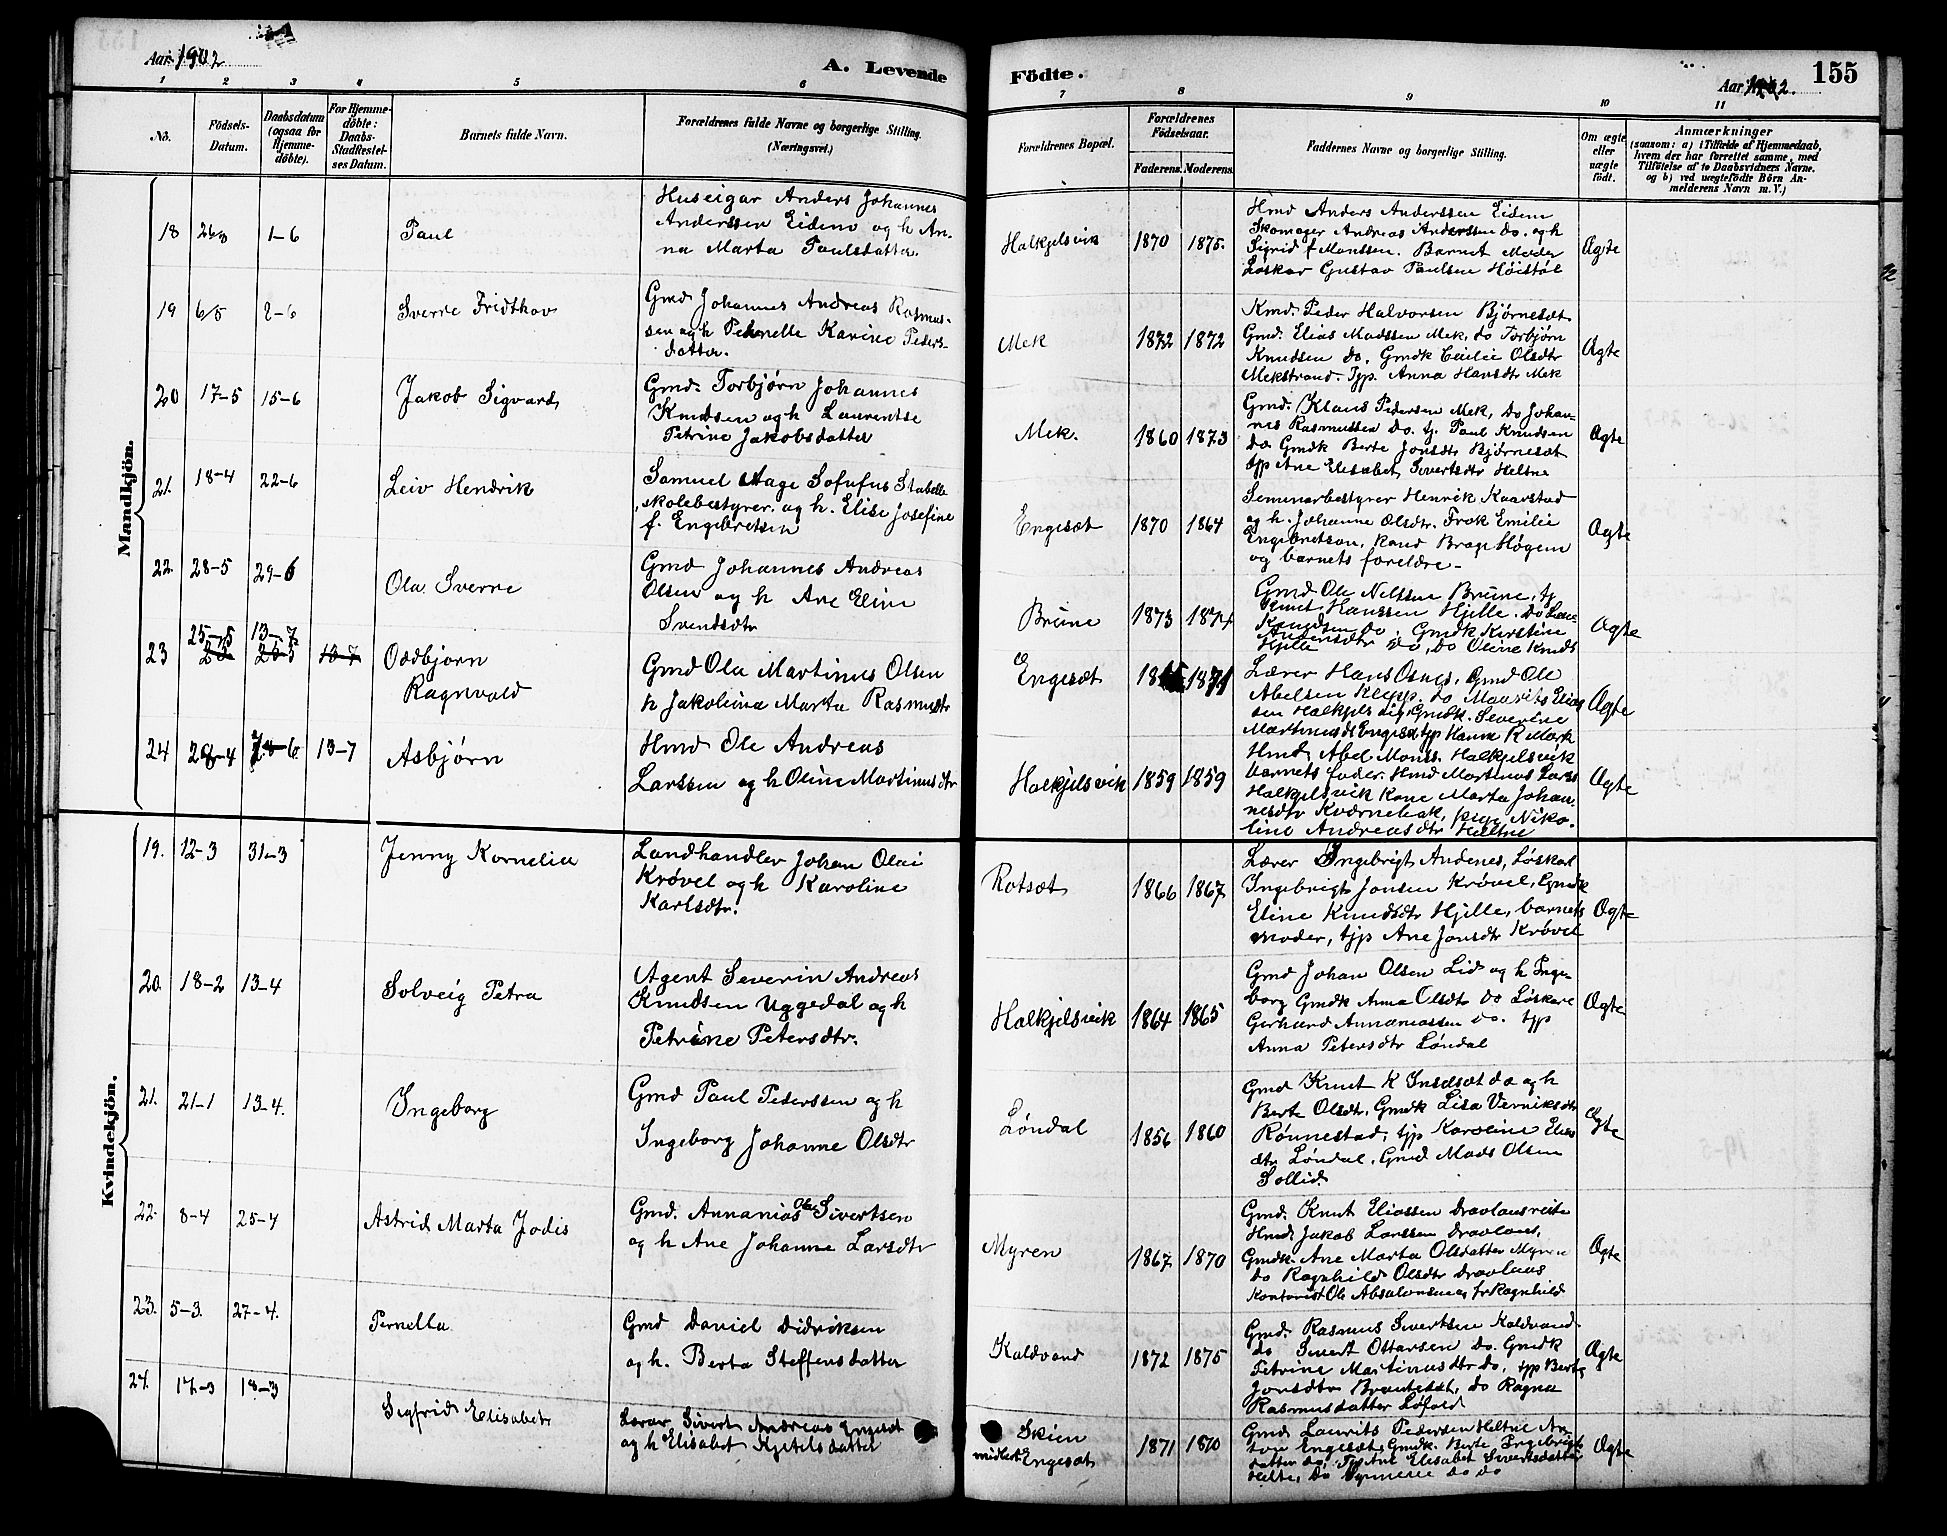 Aar 1902
A. Levende
Fødte.
Aar 1902.
155
1 2 3 4 5 6 7 8 9 10 11
No.
Fødsels-
Datum.
Daabsdatum
(ogsaa for
Hjemme-
døbte).
For Hjemme-
døbte:
Daabs-
Stadfestel-
ses Datum.
Barnets fulde Navn.
Forældrenes fulde Navne og borgerlige Stilling.
(Næringsvei.)
Forældrenes Bopæl.
Forældrenes
Fødselsaar.
Faderens. Moderens.
Faddernes Navne og borgerlige Stilling.
Om ægte
eller
uægte
født.
Anmærkninger
(saasom: a) i Tilfælde af Hjemmedaab,
hvem der har forrettet samme, med
Tilføielse af to Daabsvidners Navne.
og b) ved uægtefødte Børn An-
melderens Navn m. V.)
Mandkjön.
18
1-6
Paul
Huseigar Anders Johannes
Anderssen Eidem og h An-
na Marta Paulsdatter.
Halkjelsvik
1870
1875.
Hmd Anders Anderssen Eidem
Skomager Andreas Anderssen do. og h
Sigrid f Monssen. Barnet Moder
Løskar Gustav Paulsen Høistøl
Ægte
19
6/5
2-6
Sverre Fridthov
Gmd Johannes Andreas Rasmus-
sen og h Pernelle Karine Peders-
datter.
Mek
1872
1872
Kmd. Peder Halvorsen Bjørneset
Gmd. Elias Madssen Mek, do Torbjørn
Knudsen do, Gmdk Cecilie Olsdtr
Mekstrand. tjp. Anna Hansdtr Mek
Ægte
20
17-5
15-6
Jakob Sigvard
Gmd. Torbjørn Johannes
Knudsen og h Laurentse
Petrine Jakobsdatter
Mek.
1860
1873
Gmd. Klaus Pedersen Mek, do Johan-
nes Rasmussen do. tj. Paul Knudsen
do. Gmdk Berte Jonsdtr Bjørneset
tjp Ane Elisabet Sivertsdtr Heltne
Ægte
21.
18-4
22-6
Leiv Hendrik
Samuel Aage Sofufus Stabelle
skolebestyrer. og h. Elise Josefine
f. Engebretsen
Engeset
1870
1864
Seminarbestyrer Henrik Kaarstad
og h. Johanne Olsdtr. Frøk Emilie
Engebretsen, Kand Brage Høgem
og barnets foreldre.
Ægte
22.
28-5
29-6
Ola Sverre
Gmd Johannes Andreas
Olsen og h Ane Eline
Svendsdtr
Brune
1873
1874
Gmd Ole Nilssen Brune, tj
Knut Hanssen Hjelle. do
Knudsen do, Gmdk Kirstine
Andersdtr do, do Oline Knuds
Hjelle
Ægte
23
25-5
13-7
13-7
Oddbjørn
Ragnvald
Gmd Ola Martinus Olsen
h Jakolina Marta Rasmusdtr
Engeset
1871
Lærer Hans Osnes, Gmd Ole
Abelsen Klepp, do Maurits Elias
sen Halkjelsvig, Gmdk. Severine
Martinusd Engeset tjp Hanna R Mork
Ægte
24
28-4
13-7
Asbjørn
Hmd Ole Andreas
Larssen og h Oline Martinusdtr
Halkjelsvik
1859
1859
Hmd. Abel Monss. Halkjelsvik
barnets fader. Hmd Martinus Lars
Halkjelsvik Kone Marta Johan-
nesdtr Kvørnebak, pige Niko-
line Andreasdtr Heltne
Ægte
Kvindekjön.
19.
12-3
31-3
Jenny Kornelia
Landhandler Johan Olai
Krøvel og h Karoline
Karlsdtr.
Rotset
1866
1867
Lærer Ingebrigt Andenes, Løskarl
Ingebrigt Jonsen Krøvel, Gmdk
Eline Knudsdtr Hjelle, barnets
moder, tjp Ane Jonsdtr Krøvel
Ægte
20.
18-2
13-4
Solveig Petra
Agent Severin Andreas
Knudsen Uggedal og h
Petrine Petersdtr.
Halkjelsvik
1864
1865
Gmd Johan Olsen Lid og h Inge-
borg Gmdk Anna Olsdtr do Løskare
Gerhard Annaniassen do. tjp
Anna Petersdtr Løndal
Ægte
21.
21-1
13-4.
Ingeborg
Gmd Paul Pederssen og h
Ingeborg Johanne Olsdtr
Løndal
1856
1860
Gmd Knut K Indset do og h
Berte Olsdtr, Gmdk Lisa Verniksdtr
Rønnestad, tjp Karoline Elias
dtr Løndal, Gmd Mads Olsen
Sollid.
Ægte
22.
8-4
25-4
Astrid Marta Jodis
Gmd. Annanias Ole Sivertsen
og h Ane Johanne Larsdtr
Myren
1867
1870
Gmd. Knut Eliassen Dravlausreite
Hmd. Jakob Larssen Dravlaus.
Gmdk. Ane Marta Olsdatter Myren
do Ragnhild Olsdtr Dravlaus
Kontorist Ole Absalonsen og fr Ragnhild
Ægte
23.
5-3.
27-4.
Pernella
Gmd Daniel Didriksen
og h. Berta Steffensdatter
Kaldvand
1872
1875
Gmd. Rasmus Sivertsen Kaldvand.
do Sivert Ottarsen do. Gmdk
Petrine Martinusdtr do, tjp Berte
Jonsdtr Brauteset, do Ragna
Rasmusdatter Løfold
Ægte
24.
17-3
18-3
Sigfrid Elisabet
Lærar Sivert Andreas Engeset
og h Elisabet Kjetelsdatter
Skien
midlert. Engeset
1871
1870
Gmd. Laurits Pedersen Heltne An-
ton Engeset, Gmdk. Berte Ingebrigts
datter do, Tjp Ane Elisabet Sivertsdatter
Heltne, do do do
Ægte